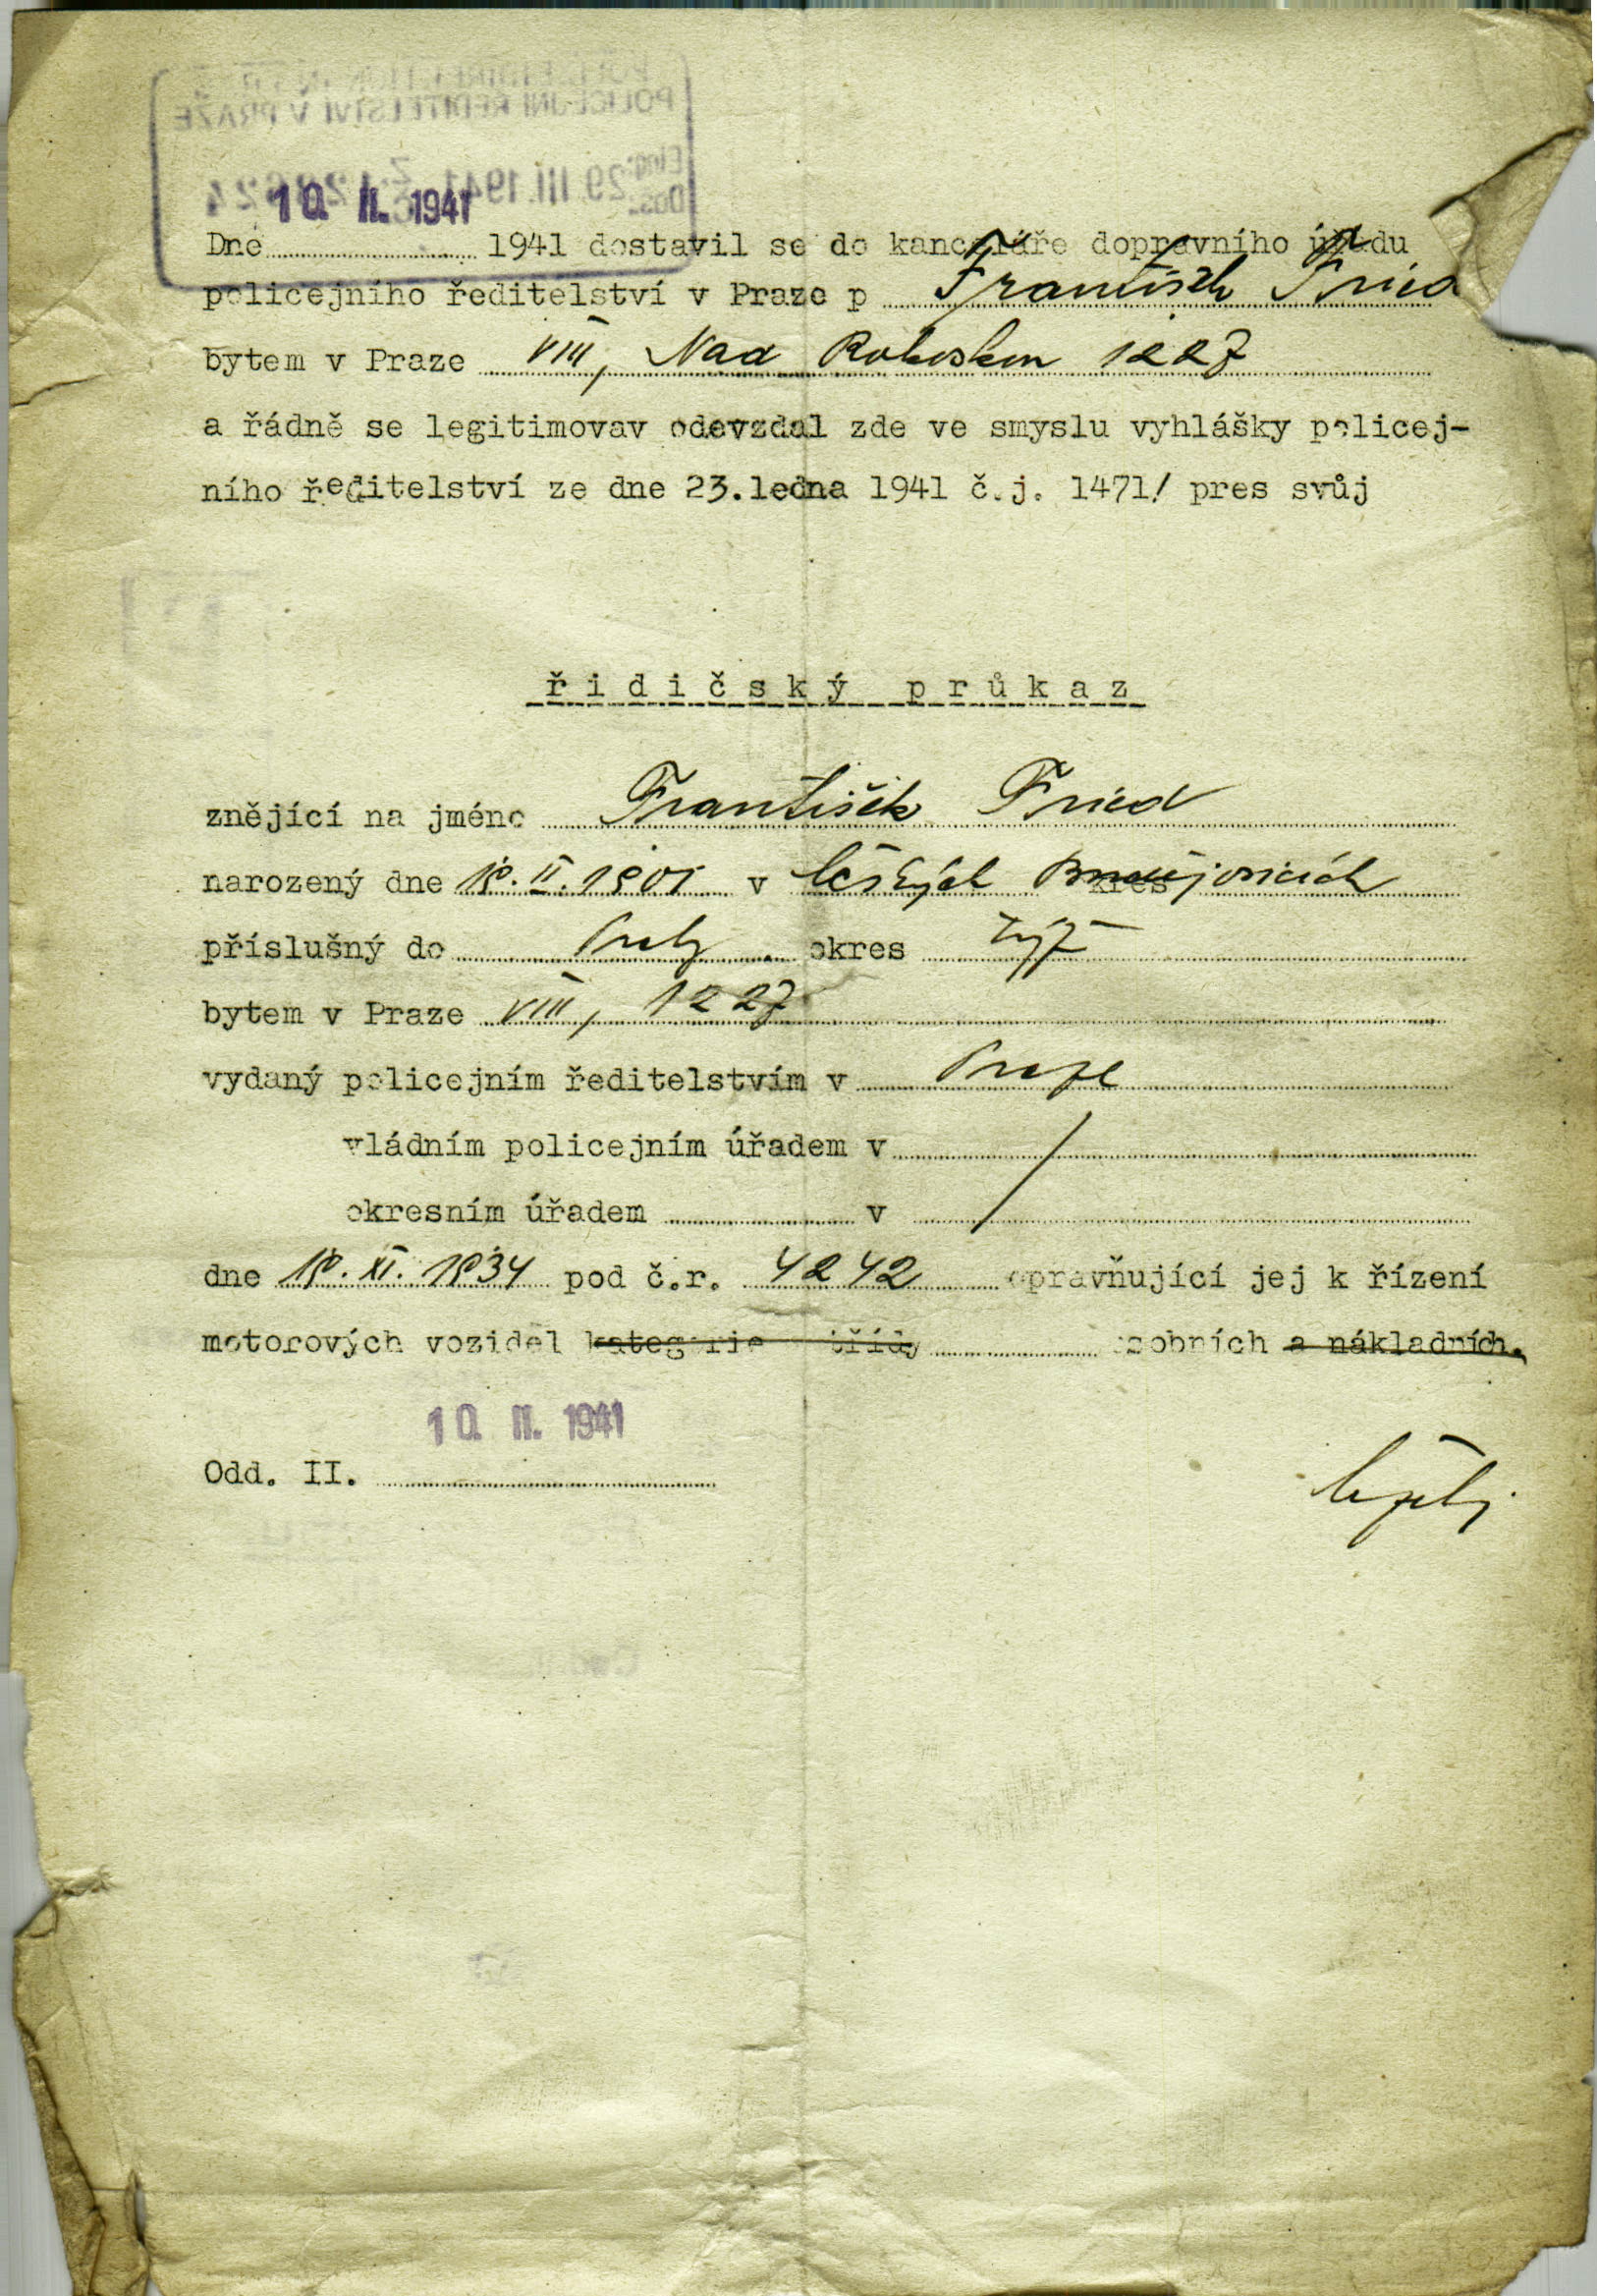 POLICEJNÍ ŘEDITELSTVÍ V PRAZE
29 III. 1941
10. II. 1941
Dne 1941 dostavil se do kanceláře dopravního úřadu
policejního ředitelství v Praze p František Fried
bytem v Praze VIII, Nad Rokoskou 1227
a řádně se legitimovav odevzdal zde ve smyslu vyhlášky policej-
ního ředitelství ze dne 23.ledna 1941 č.j. 1471/ pres svůj
řidičský průkaz
znějící na jméno František Fried
narozený dne v Českých Budějovicích
příslušný do Prahy okres týž
bytem v Praze VIII, 1227
vydaný policejním ředitelstvím v Praze
vládním policejním úřadem v
okresním úřadem v
dne pod č.r. 4242 opravňující jej k řízení
motorových vozidel kategorie třídy osobních a nákladních.
10. II. 1941
Odd. II.